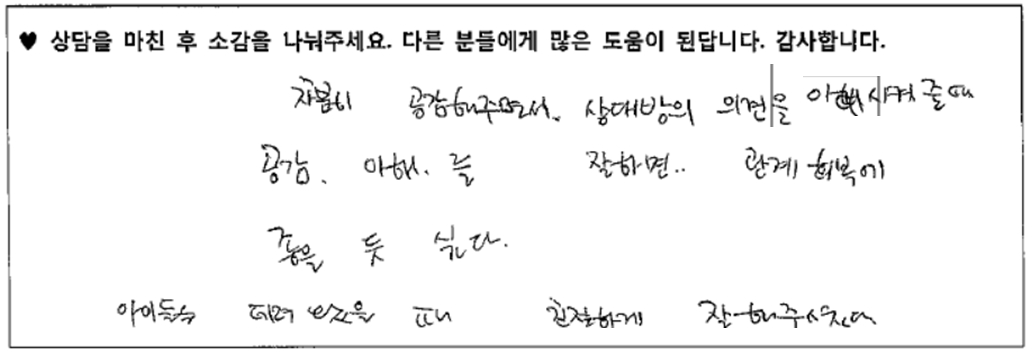 ♥ 상담을 마친 후 소감을 나눠주세요. 다른 분들에게 많은 도움이 된답니다. 감사합니다.
꼬꼼히 공감해주면서. 상대방의 의견을 이해시켜 줄때
공감. 이해. 를 잘하면.. 관계 회복에
좋을 듯 싶다.
아이들을 데려 왔을 때 친절하게 잘해주셨다